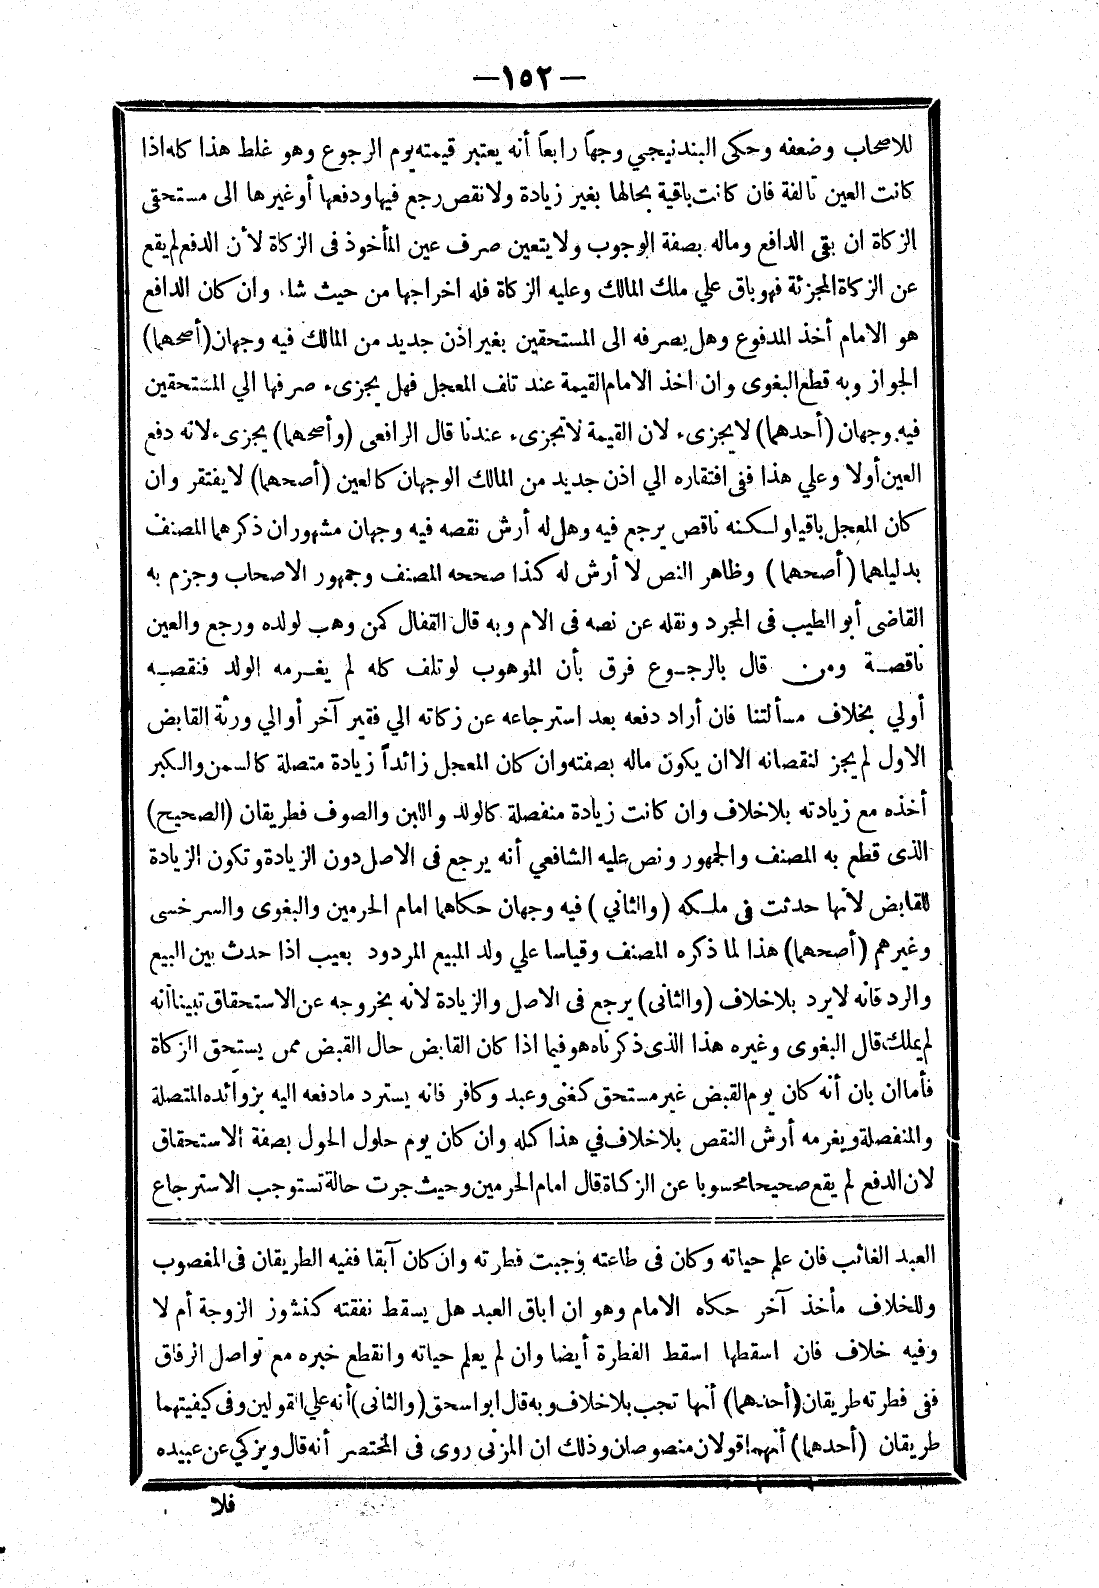 — ١٥٢ —
للاصحاب وضعفه وحكى البندنيجي وجهاً رابعاً أنه يعتبر قيمته يوم الرجوع وهو غلط هذا كله اذا
كانت العين تالفة فان كانت باقية بحالها بغير زيادة ولا نقص رجع فيها ودفعها أو غيرها الى مستحقى
الزكاة ان بقى الدافع وماله بصفة الوجوب ولا يتعين صرف عين المأخوذ فى الزكاة لأن الدفع لم يقع
عن الزكاة المجزئة فهو باق علي ملك المالك وعليه الزكاة فله اخراجها من حيث شاء وان كان الدافع
هو الامام أخذ المدفوع وهل يصرفه الى المستحقين بغير اذن جديد من المالك فيه وجهان (أصحهما)
الجواز وبه قطع البغوى وان اخذ الامام القيمة عند تلف المعجل فهل يجزىء صرفها الي المستحقين
فيه وجهان (أحدهما) لا يجزىء لان القيمة لا تجزىء عندنا قال الرافعى (وأصحهما) يجزىء لانه دفع
العين أولا وعلي هذا ففى افتقاره الي اذن جديد من المالك الوجهان كالعين (أصحهما) لا يفتقر وان
كان المعجل باقيا ولكنه ناقص يرجع فيه وهل له أرش نقصه فيه وجهان مشهوران ذكرهما المصنف
بدليلهما (أصحهما) وظاهر النص لا أرش له كذا صححه المصنف وجمهور الاصحاب وجزم به
القاضى أبو الطيب فى المجرد ونقله عن نصه فى الام وبه قال القفال كمن وهب لولده ورجع والعين
ناقصة ومن قال بالرجوع فرق بأن الموهوب لو تلف كله لم يغرمه الولد فنقصه
أولي بخلاف مسألتنا فان أراد دفعه بعد استرجاعه عن زكاته الي فقير آخر أو الي ورثة القابض
الاول لم يجز لنقصانه الا ان يكون ماله بصفته وان كان المعجل زائداً زيادة متصلة كالسمن والكبر
أخذه مع زيادته بلا خلاف وان كانت زيادة منفصلة كالولد واللبن والصوف فطريقان (الصحيح)
الذى قطع به المصنف والجمهور ونص عليه الشافعي أنه يرجع فى الاصل دون الزيادة وتكون الزيادة
للقابض لأنها حدثت في ملكه (والثاني) فيه وجهان حكاهما امام الحرمين والبغوى والسرخسى
وغيرهم (أصحهما) هذا لما ذكره المصنف وقياسا علي ولد المبيع المردود بعيب اذا حدث بين البيع
والرد فانه لا يرد بلا خلاف (والثانى) يرجع فى الاصل والزيادة لانه بخروجه عن الاستحقاق تبينا أنه
لم يملك قال البغوى وغيره هذا الذى ذكرناه هو فيما اذا كان القابض حال القبض ممن يستحق الزكاة
فأما ان بان أنه كان يوم القبض غير مستحق كغنى وعبد وكافر فانه يسترد ما دفعه اليه بزوائده المتصلة
والمنفصلة ويغرمه أرش النقص بلا خلاف في هذا كله وان كان يوم حلول الحول بصفة الاستحقاق
لان الدفع لم يقع صحيحا محسوبا عن الزكاة قال امام الحرمين وحيث جرت حالة تستوجب الاسترجاع
العبد الغائب فان علم حياته وكان فى طاعته وجبت فطرته وان كان آبقا ففيه الطريقان فى المغصوب
وللخلاف مأخذ آخر حكاه الامام وهو ان اباق العبد هل يسقط نفقته كنشوز الزوجة أم لا
وفيه خلاف فان اسقطها اسقط الفطرة أيضا وان لم يعلم حياته وانقطع خبره مع تواصل الرفاق
ففى فطرته طريقان (أحدهما) أنها تجب بلا خلاف وبه قال ابو اسحق (والثانى) أنه علي القولين وفى كيفيتهما
طريقان (أحدهما) أنهما قولان منصوصان وذلك ان المزنى روى فى المختصر أنه قال ويزكي عن عبيده
فلا